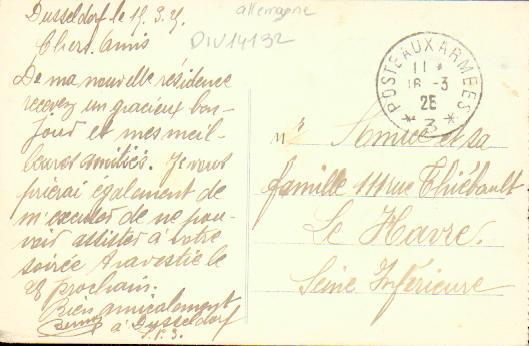 Dusseldorf le 15.3.25.
allemagne
DIV14132
Chers Amis
De ma nouvelle résidence
recevez un gracieux bon-
jour et mes meil-
leures amitiés. Je vous
prierai également de
m'excuser de ne pou-
voir assister à votre
soirée travestie le
28 prochain.
Bien amicalement
à Dusseldorf
POSTE AUX ARMEES
11 *
16 - 3
25
* 3 *
Mr et sa
famille 111 rue Thiébault
Le Havre.
Seine Inférieure